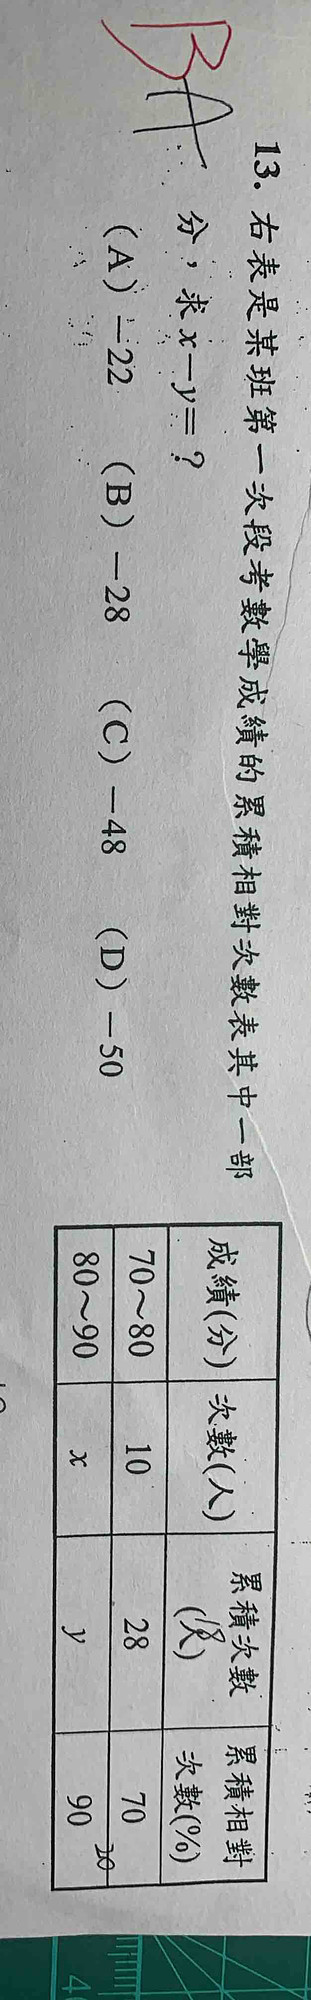 BA
13. 右表是某班第一次段考數學成績的累積相對次數表其中一部
分，求x－y＝？
(A)－22 (B)－28 (C)－48 (D)－50
成績(分) 次數(人) 累積次數(人) 累積相對次數(%)
70～80 10 28 70
80～90 x y 90
18
20